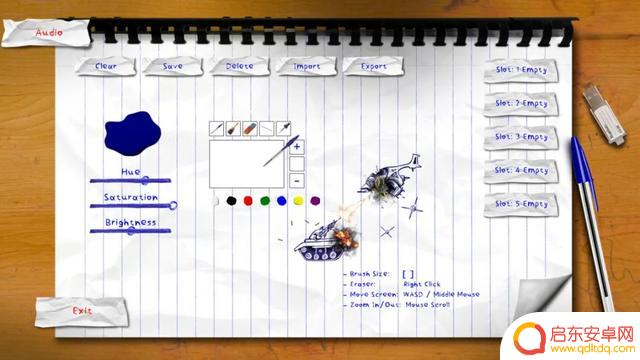 Audio
Clear Save Delete Import Export
Slot: 1 Empty
Slot: 2 Empty
Slot: 3 Empty
Slot: 4 Empty
Slot: 5 Empty
Hue
Saturation
Brightness
+
-
- Brush Size: [ ]
- Eraser: Right Click
- Move Screen: WASD / Middle Mouse
- Zoom In/Out: Mouse Scroll
Exit
启东安卓网
www.qdltdq.com